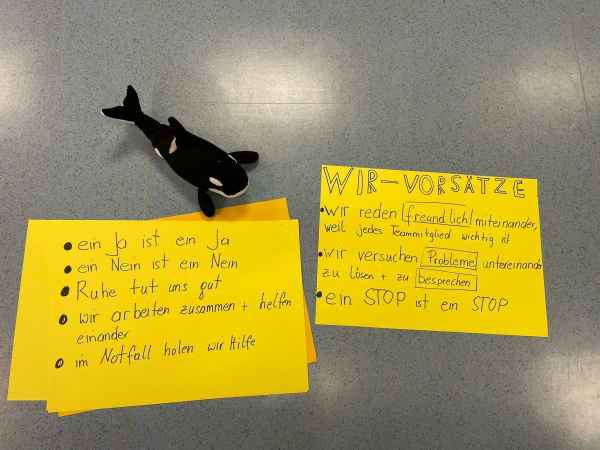 • ein Ja ist ein Ja
• ein Nein ist ein Nein
• Ruhe tut uns gut
• wir arbeiten zusammen + helfen
einander
• im Notfall holen wir Hilfe
WIR-VORSÄTZE
• WIR reden freundlich miteinander,
weil jedes Teammitglied wichtig ist
• WIR versuchen Probleme untereinander
zu lösen + zu besprechen
• ein STOP ist ein STOP